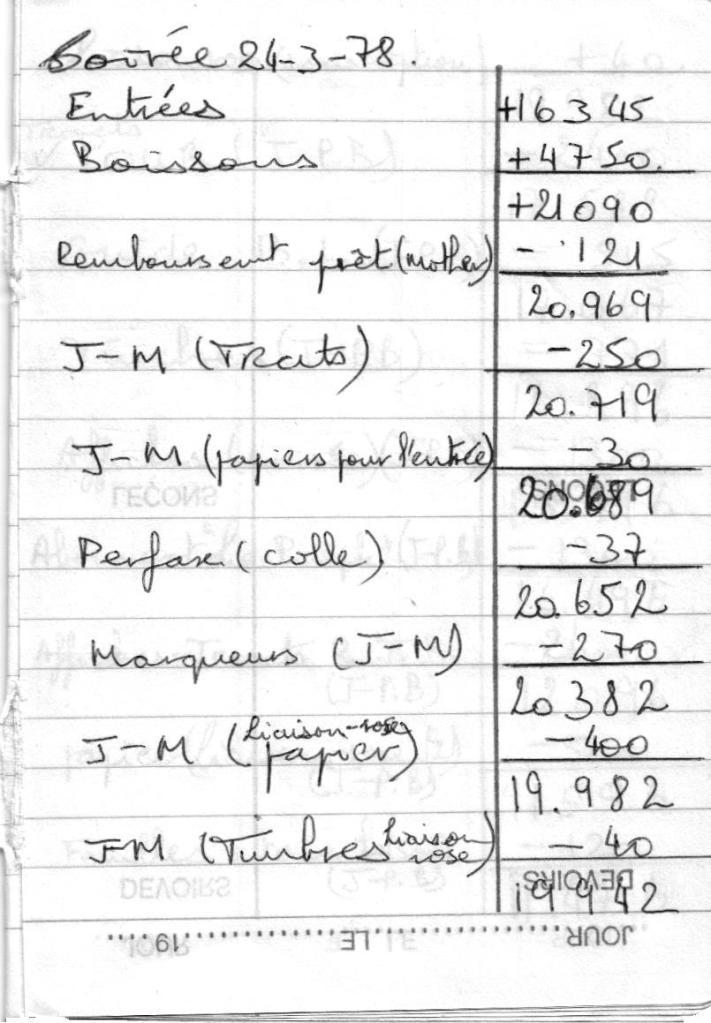 Soirée 24-3-78.
Entrées +16345
Boissons +4750.
+21090
Remboursemt prêt (mother) - 121
20.969
J-M (Tracts) -250
20.719
J-M (papiers pour l'entrée) -30
LEÇONS 20.689
Perfax (colle) -37
20.652
Marqueurs (J-M) -270
20382
J-M (papier) Liaison-rose -400
19.982
J-M (Timbres Liaison rose) -40
DEVOIRS 19942
JOUR ............ LE ............ 19....